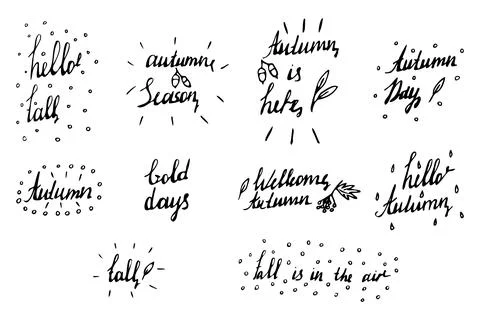 hello
fall
autumn
Season
Autumn
is
here
Autumn
Days
Autumn
Gold
days
Wellcome
Autumn
hello
Autumn
fall
fall is in the air